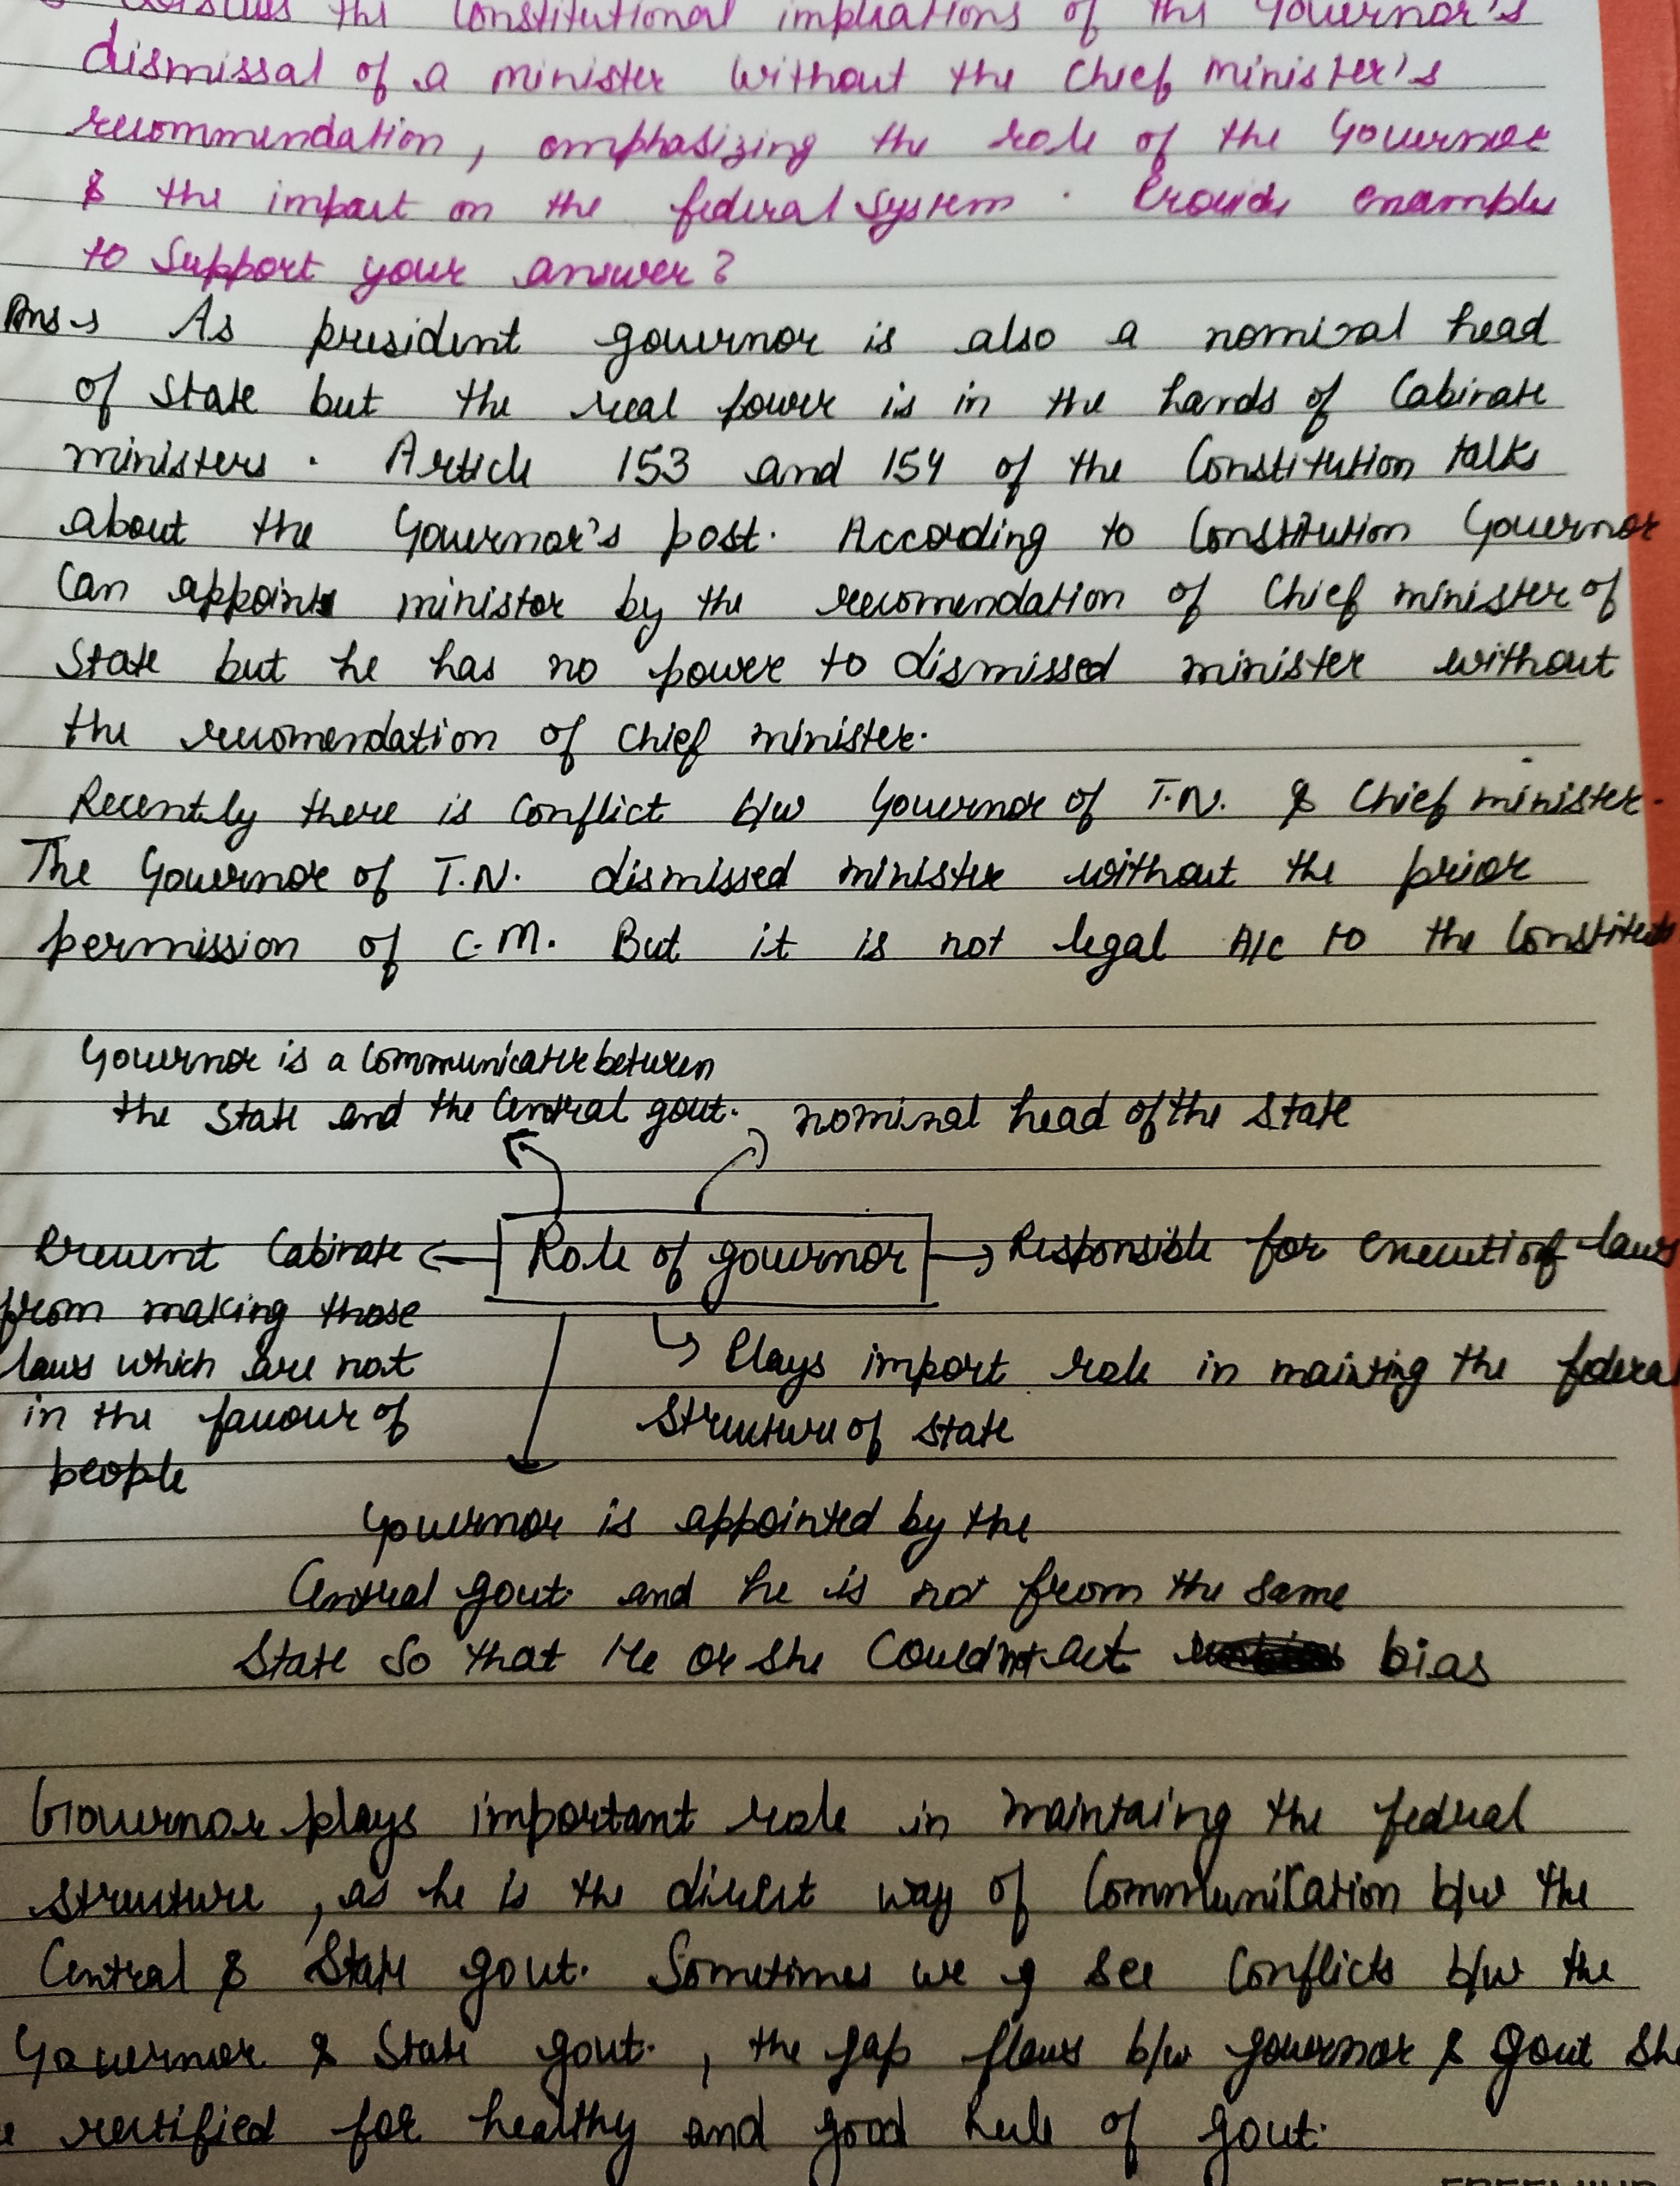 the Constitutional implications of the Governor's
dismissal of a minister without the Chief minister's
recommendation, emphasizing the role of the Governor
& the impact on the federal system. Provide example
to Support your answer?
Ans → As president governor is also a nominal head
of State but the real power is in the hands of Cabinate
ministers. Article 153 and 154 of the Constitution talks
about the Governor's post. According to Constitution Governor
Can appoint minister by the recomendation of Chief minister of
State but he has no power to dismissed minister without
the recomendation of Chief minister.
Recently there is Conflict b/w Governor of T.N. & Chief minister.
The Governor of T.N. dismissed minister without the prior
permission of C.M. But it is not legal A/c to the
Governor is a Communicater between
the State and the Central govt.
nominal head of the State
Prevent Cabinate
from making those
laws which are not
in the favour of
people
Role of governor
Responsible for execution of laws
Plays import role in mainting the federal
Structure of State
Governor is appointed by the
Central govt. and he is not from the same
State So that He or she Could not act bias
Governor plays important role in maintaing the federal
structure, as he is the direct way of Communication b/w the
Central & State govt. Sometimes we see Conflicts b/w the
Governor & State govt., the gap flaws b/w governor & govt
rectified for healthy and good Rule of govt.